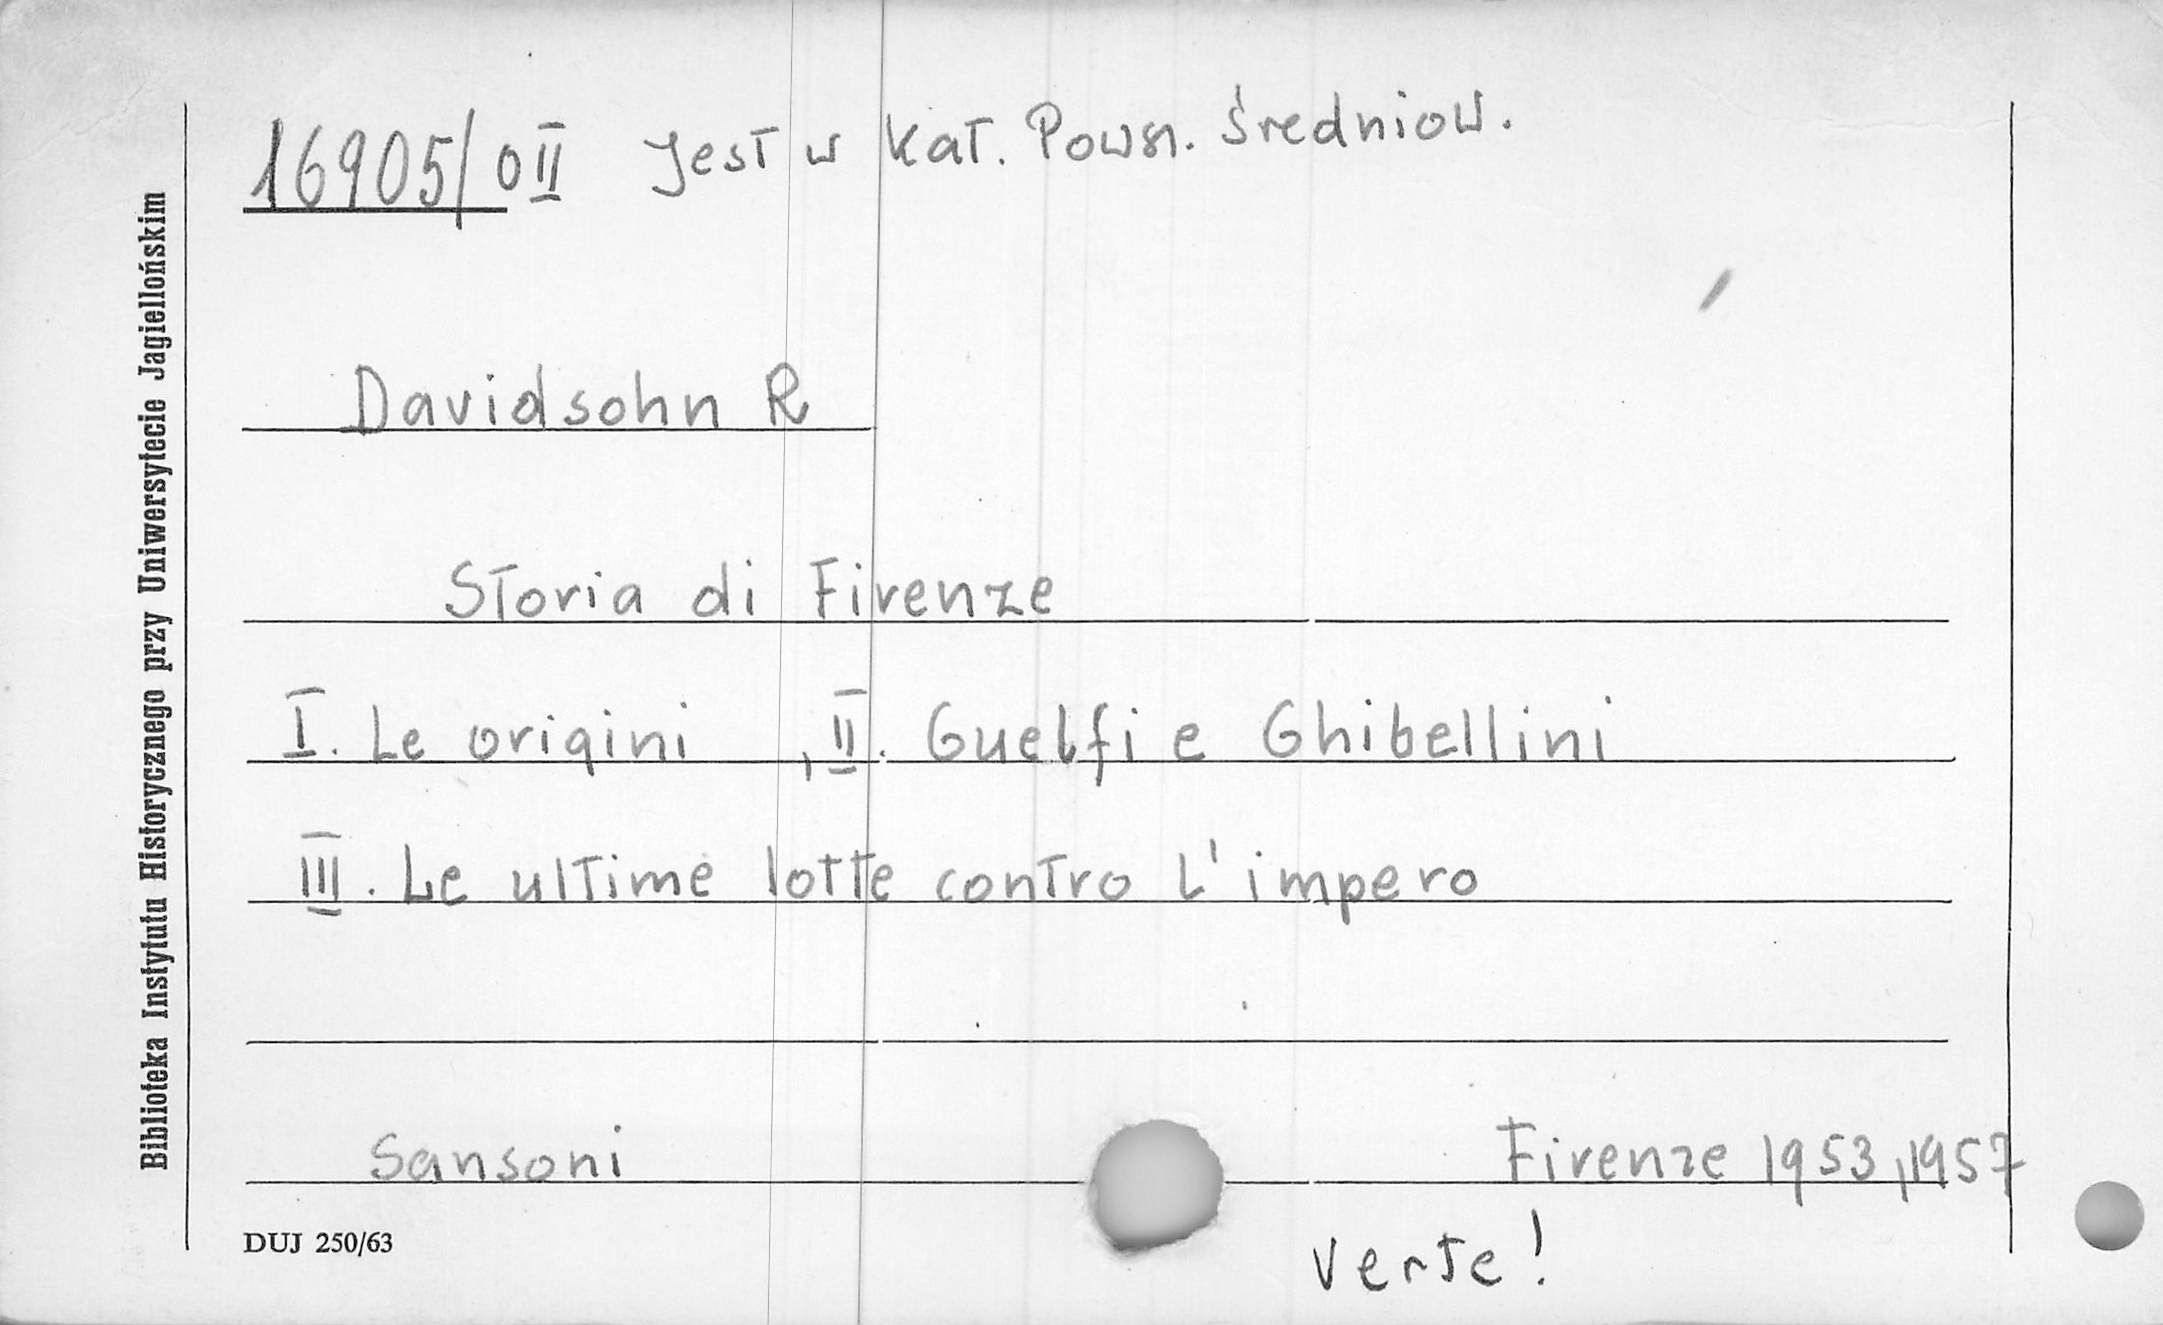 16905/0II Jest w kat. Powsz. średniow.
Davidsohn R
Storia di Firenze
I. Le origini , II. Guelfi e Ghibellini
III. Le ultime lotte contro l'impero
Sansoni Firenze 1953, 1957
DUJ 250/63
verte!
Biblioteka Instytutu Historycznego przy Uniwersytecie Jagiellońskim